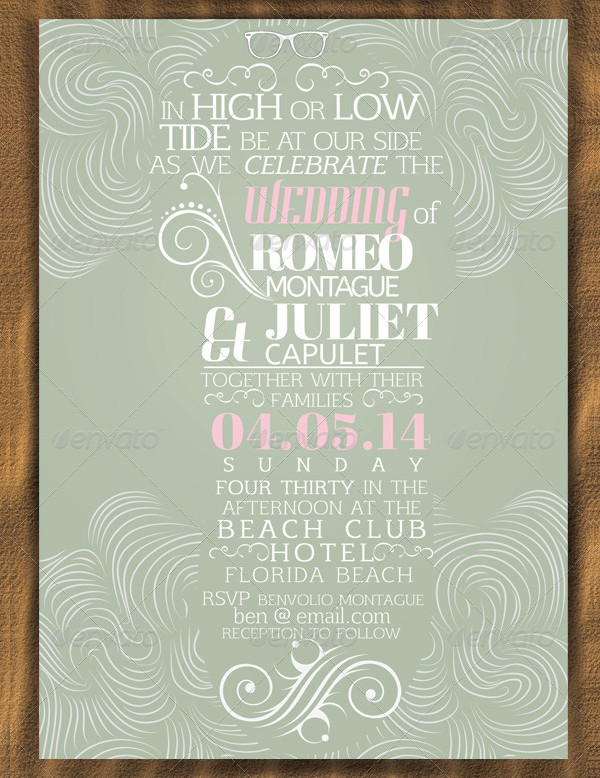 IN HIGH OR LOW
TIDE BE AT OUR SIDE
AS WE CELEBRATE THE
WEDDING of
ROMEO
MONTAGUE
Et JULIET
CAPULET
TOGETHER WITH THEIR
FAMILIES
04.05.14
SUNDAY
FOUR THIRTY IN THE
AFTERNOON AT THE
BEACH CLUB
HOTEL
FLORIDA BEACH
RSVP BENVOLIO MONTAGUE
ben @ email.com
RECEPTION TO FOLLOW
envato